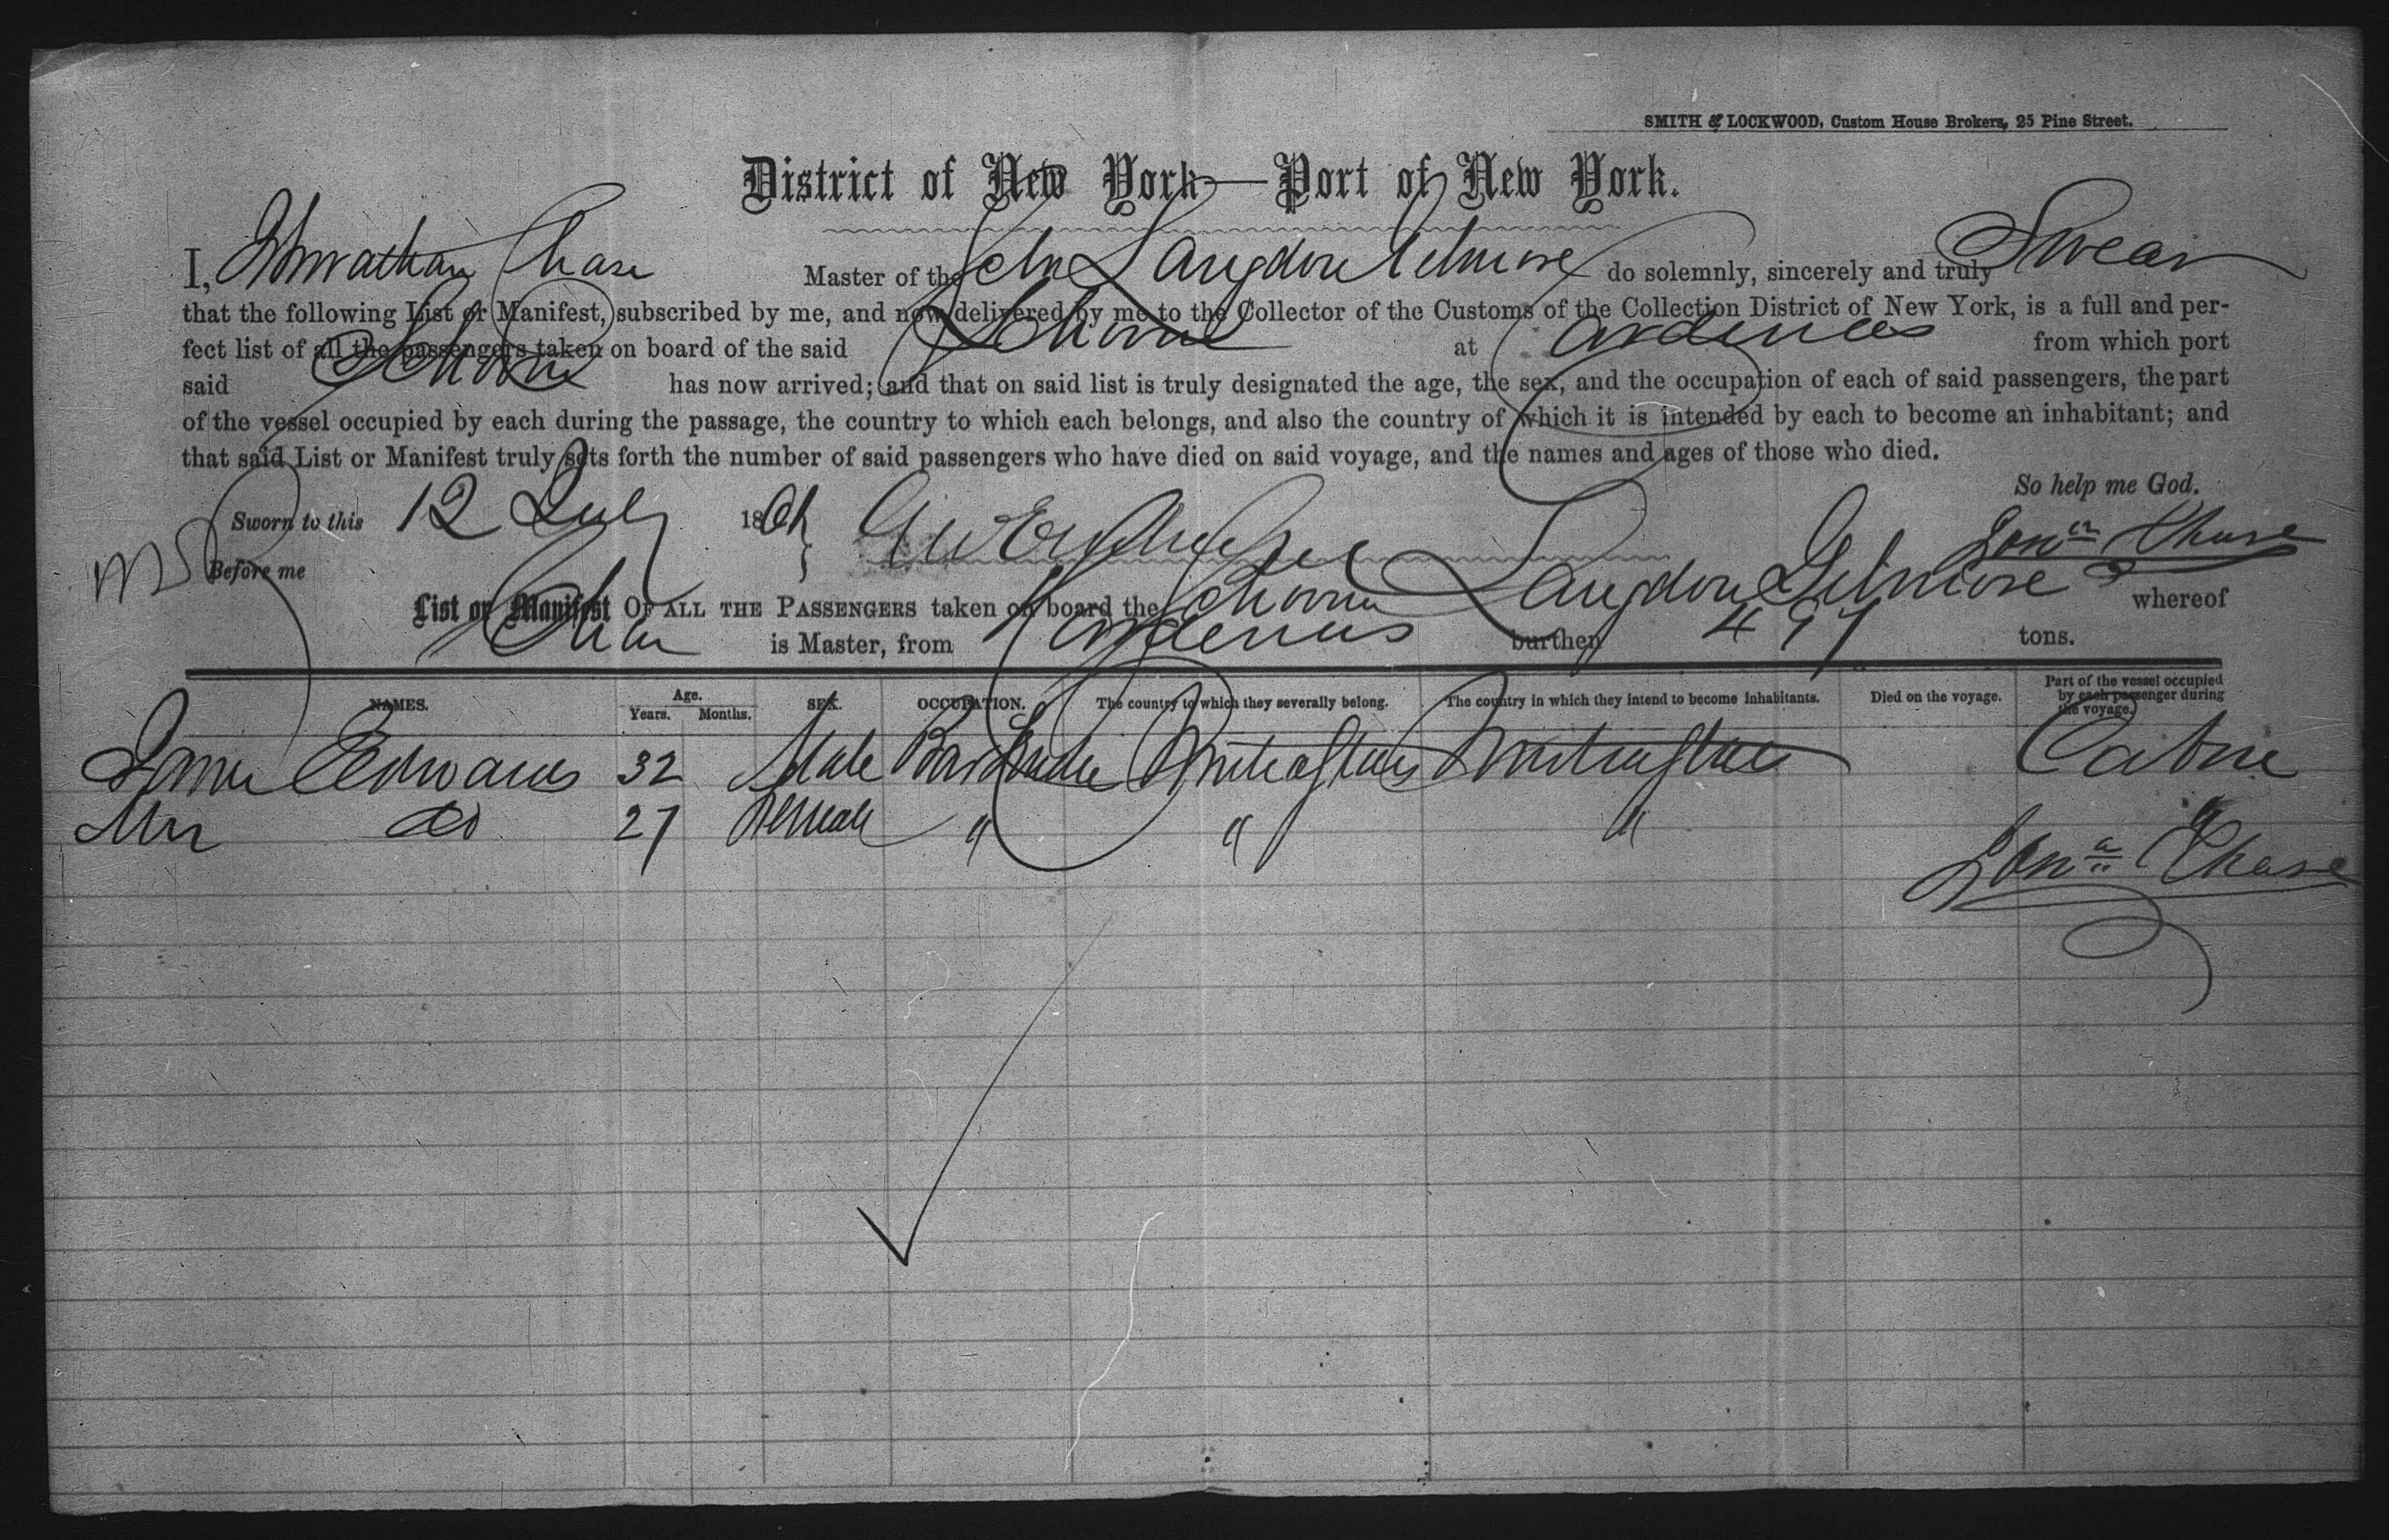 SMITH & LOCKWOOD, Custom House Brokers, 25 Pine Street.
District of New York—Port of New York.
I, Jonathan Chase Master of the Schr Langdon Gilmore do solemnly, sincerely and truly Swear
that the following List or Manifest, subscribed by me, and now delivered by me to the Collector of the Customs of the Collection District of New York, is a full and per-
fect list of all the passengers taken on board of the said Schooner at Cardenas from which port
said Schooner has now arrived; and that on said list is truly designated the age, the sex, and the occupation of each of said passengers, the part
of the vessel occupied by each during the passage, the country to which each belongs, and also the country of which it is intended by each to become an inhabitant; and
that said List or Manifest truly sets forth the number of said passengers who have died on said voyage, and the names and ages of those who died.
So help me God.
Sworn to this 12 July 186 Jonª Chase
Before me
List or Manifest OF ALL THE PASSENGERS taken on board the Schooner Langdon Gilmore whereof
Chase is Master, from Cardenas burthen 497 tons.
NAMES. Age. Years. Months. SEX. OCCUPATION. The country to which they severally belong. The country in which they intend to become inhabitants. Died on the voyage. Part of the vessel occupied by each passenger during the voyage.
Edwards 32 Male United States United States Cabin
Mrs do 27 Female " " " "
Jonª Chase